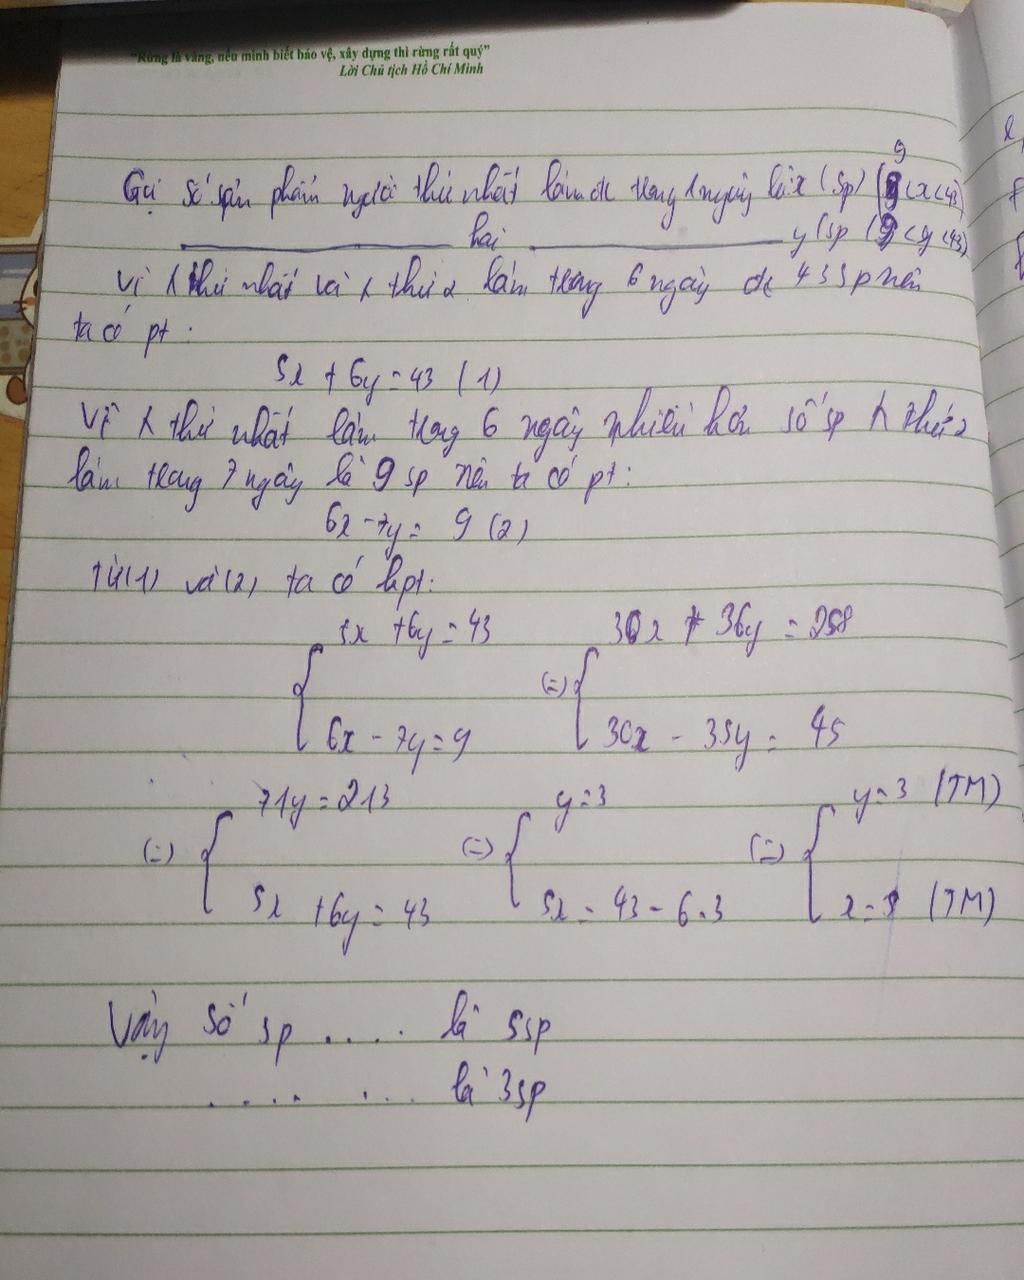 "Rừng là vàng, nếu mình biết bảo vệ, xây dựng thì rừng rất quý"
Lời Chủ tịch Hồ Chí Minh
9
Gọi số sản phẩm người thứ nhất làm đc trong 1 ngày là x (sp) (9<x<43)
hai y (sp (9<y<43)
Vì thứ nhất và thứ 2 làm trong 6 ngày đc 43 sp nên
ta có pt:
5x + 6y = 43 (1)
Vì thứ nhất làm trong 6 ngày nhiều hơn số sp thứ 2
làm trong 7 ngày là 9 sp nên ta có pt:
6x - 7y = 9 (2)
Từ (1) và (2) ta có hpt:
5x + 6y = 43 30x + 36y = 258
(=)
6x - 7y = 9 30x - 35y = 45
71y = 213 y = 3 y = 3 (TM)
(=) (=) (=)
5x + 6y = 43 5x = 43 - 6.3 x = 5 (TM)
Vậy số sp .... là 5sp
.... ... là 3sp